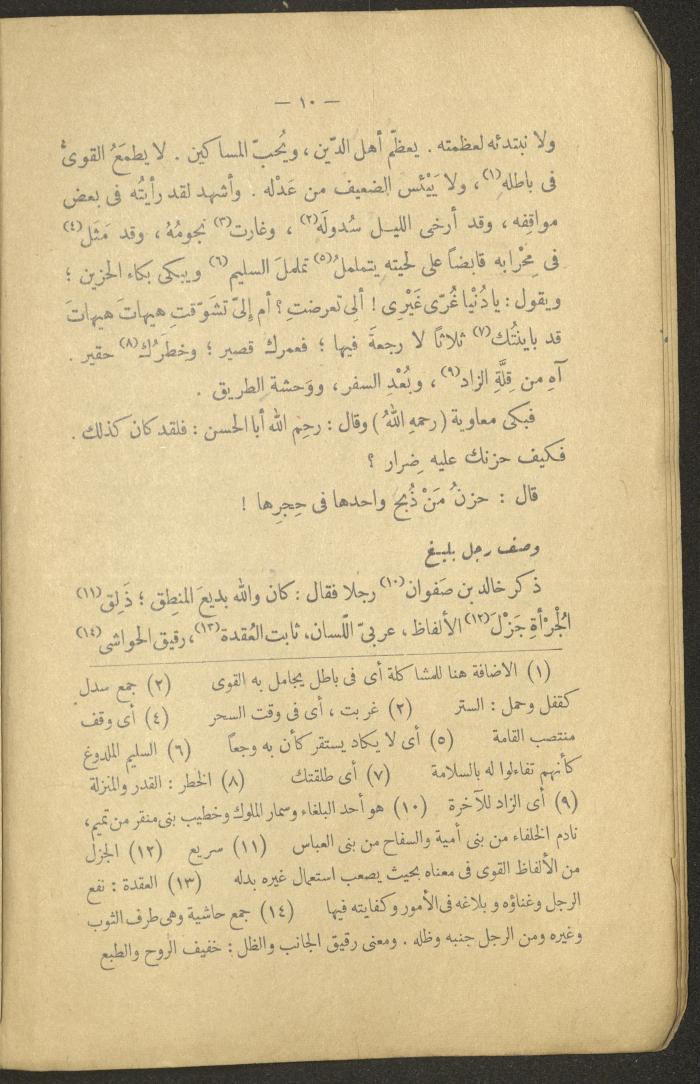 — ١٠ —
ولا نبتدئه لعظمته . يعظّم أهل الدّين ، ويُحبّ المساكين . لا يطمَعُ القوىُّ
فى باطله(١) ، ولا يَيْئس الضعيف من عَدْله . وأشهد لقد رأيتُه فى بعض
مواقِفه ، وقد أرخى الليـل سُدولَه(٢) ، وغارت(٣) نجومُهُ ، وقد مَثَل(٤)
فى مِحْرابه قابضاً على لحيته يتململُ(٥) تململَ السليم(٦) ويبكى بكاء الحزين ؛
ويقول : يا دُنْيا غُرّى غَيْرِى ! ألِى تعرضتِ ؟ أم إلىّ تشوّقتِ هيهاتَ هيهاتَ
قد باينتُك(٧) ثلاثاً لا رجعةَ فيها ؛ فعمرك قصير ؛ وخطَرُك(٨) حقير .
آهِ من قِلَّةِ الزاد(٩) ، وبُعْدِ السفر ، ووَحشة الطريق .
فبكى معاوية (رحمهِ اللهُ) وقال : رحِم الله أبا الحسن : فلقد كان كذلك .
فكيف حزنك عليه ضِرار ؟
قال : حزنُ مَنْ ذُبح واحدها فى حِجرِها !
وصف رجل بليغ
ذكر خالد بن صَفوان(١٠) رجلا فقال : كان والله بديعَ المنطِق ؛ ذَلِق(١١)
الجُرْأةِ جَزْلَ(١٢) الألفاظ ، عربىّ اللّسان ، ثابت العُقدة(١٣) ، رقيق الحواشى(١٤)
(١) الاضافة هنا للمشاكلة أى فى باطل يجامل به القوى (٢) جمع سدل
كقفل وحمل : الستر (٢) غربت ، أى فى وقت السحر (٤) أى وقف
منتصب القامة (٥) أى لا يكاد يستقر كأن به وجعاً (٦) السليم الملدوغ
كأنهم تفاءلوا له بالسلامة (٧) أى طلقتك (٨) الخطر : القدر والمنزلة
(٩) أى الزاد للآخرة (١٠) هو أحد البلغاء وسمار الملوك وخطيب بنى منقر من تميم،
نادم الخلفاء من بنى أمية والسفاح من بنى العباس (١١) سريع (١٢) الجزل
من الألفاظ القوى فى معناه بحيث يصعب استعمال غيره بدله (١٣) العقدة : نفع
الرجل وغناؤه و بلاغه فى الأمور وكفايته فيها (١٤) جمع حاشية وهى طرف الثوب
وغيره ومن الرجل جنبه وظله . ومعنى رقيق الجانب والظل : خفيف الروح والطبع